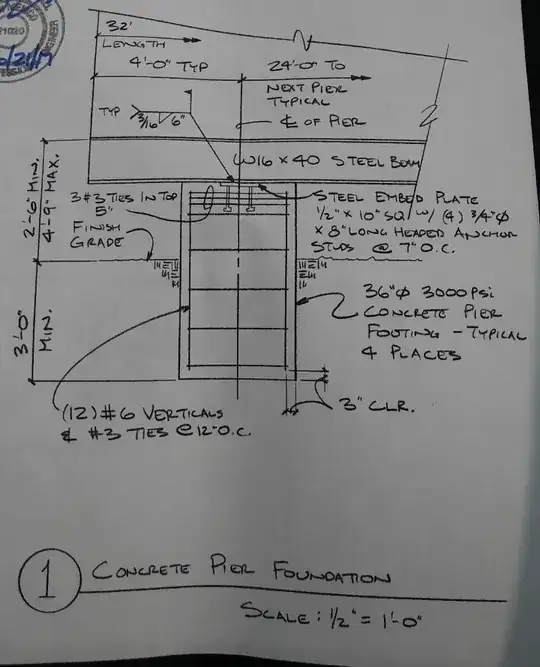 32'
LENGTH
4'-0" TYP
24'-0" TO
NEXT PIER
TYPICAL
℄ OF PIER
TYP
3/16 6"
W16 x 40 STEEL BEAM
2'-6" MIN.
4'-9" MAX.
3#3 TIES IN TOP
5"
FINISH
GRADE
STEEL EMBED PLATE
1/2" x 10" SQ. W/ (4) 3/4"Φ
x 8" LONG HEADED ANCHOR
STUDS @ 7" O.C.
3'-0"
MIN.
36"Φ 3000 PSI
CONCRETE PIER
FOOTING - TYPICAL
4 PLACES
3" CLR.
(12) #6 VERTICALS
& #3 TIES @ 12" O.C.
1
CONCRETE PIER FOUNDATION
SCALE: 1/2" = 1'-0"